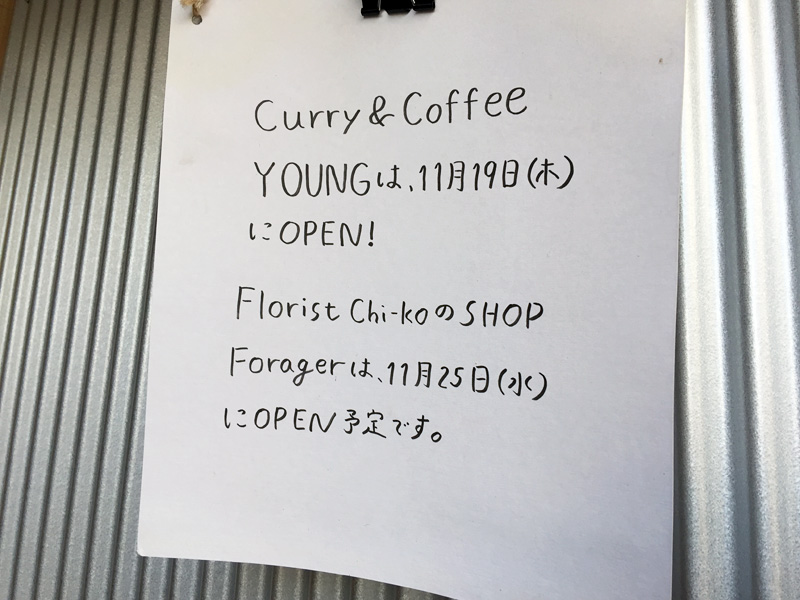 Curry & Coffee
YOUNGは、11月19日(木)
にOPEN!
Florist Chi-koのSHOP
Foragerは、11月25日(水)
にOPEN予定です。